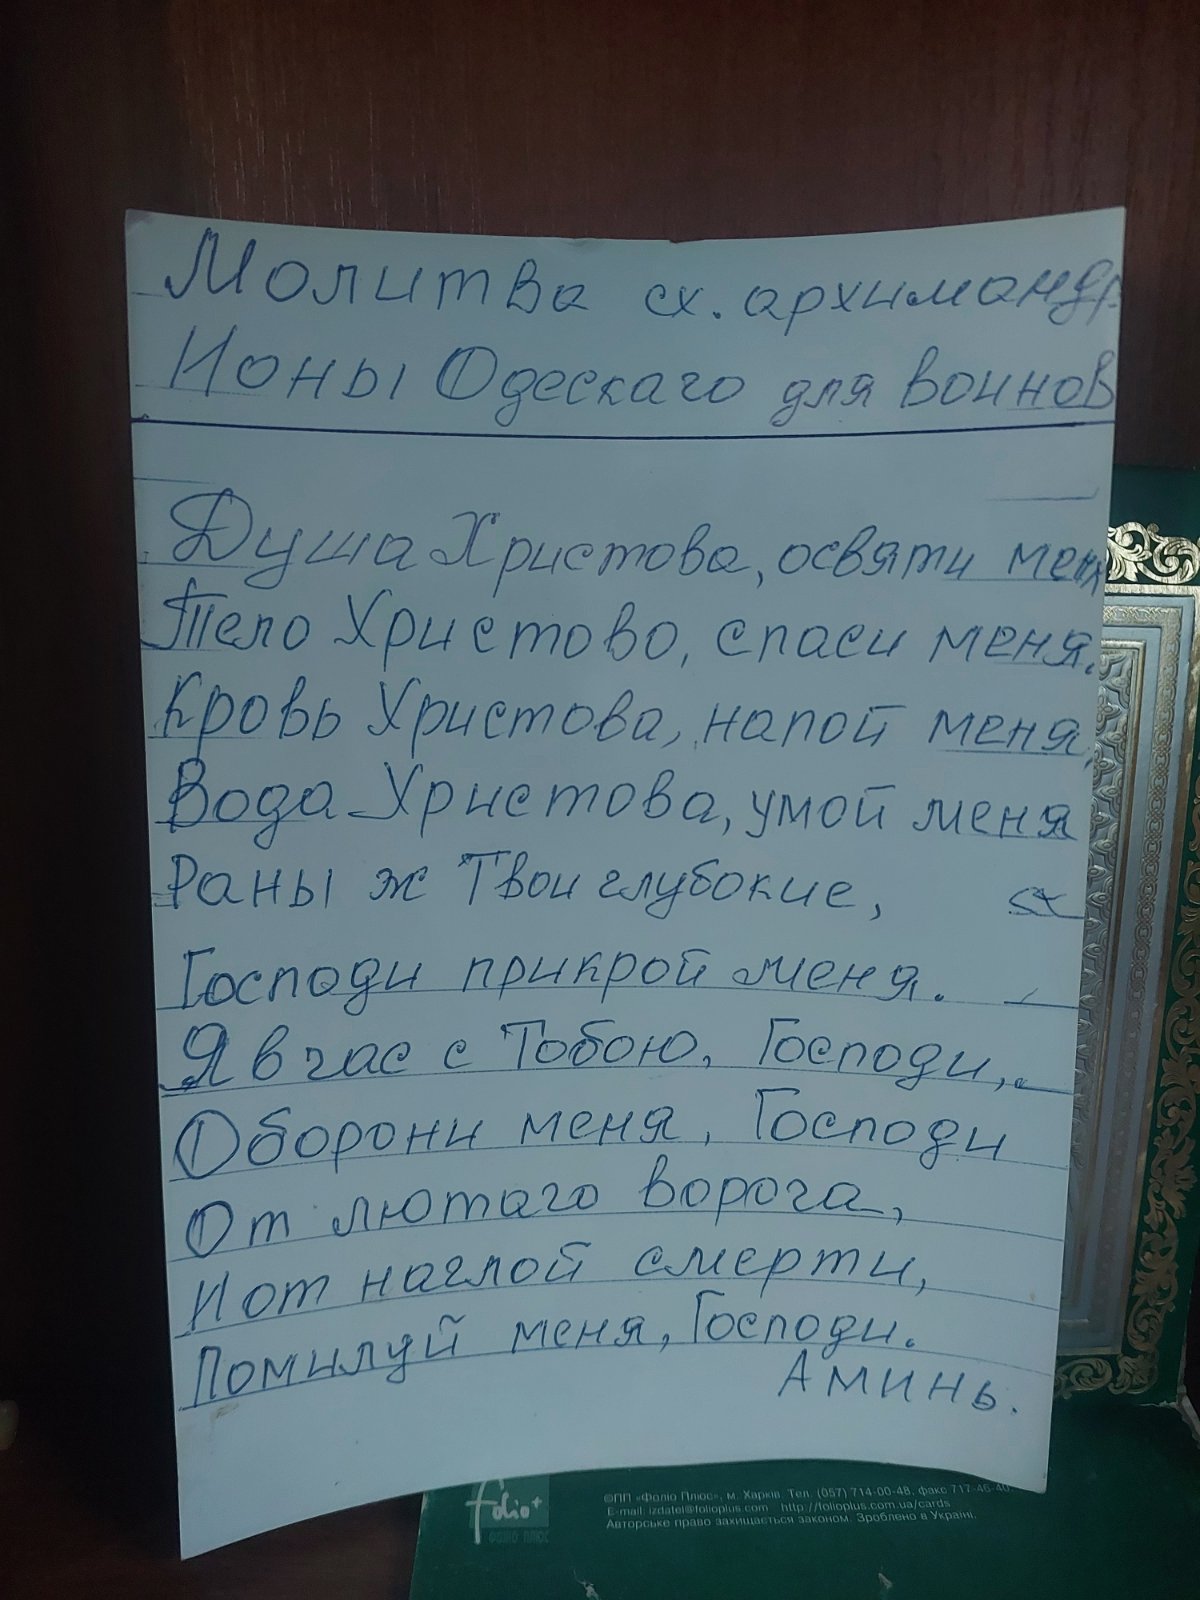 Молитва сх. архимандр.
Ионы Одескаго для воинов
Душа Христова, освяти меня
Тело Христово, спаси меня.
Кровь Христова, напой меня,
Вода Христова, умой меня
Раны ж Твои глубокие,
Господи прикрой меня.
Я в час с Тобою, Господи,
Оборони меня, Господи
От лютаго ворога,
И от наглой смерти,
Помилуй меня, Господи.
Аминь.
folio+
ФОЛІО ПЛЮС
©ПП «Фоліо Плюс», м. Харків. Тел. (057) 714-00-48, факс 717-46-40
E-mail: izdatel@folioplus.com http://folioplus.com.ua/cards
Авторське право захищається законом. Зроблено в Україні.